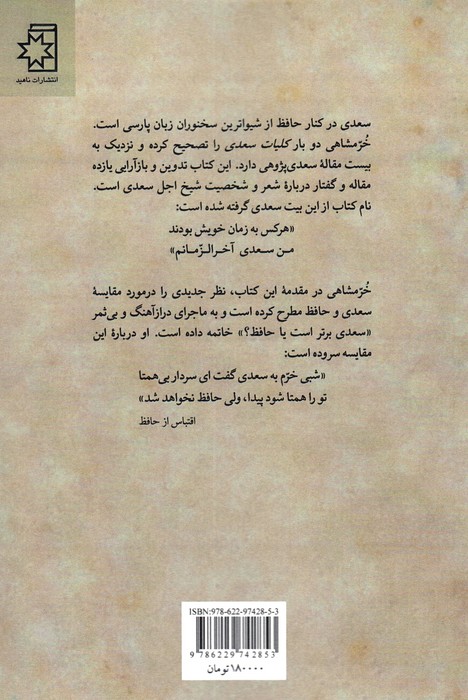 انتشارات ناهید
سعدی در کنار حافظ از شیواترین سخنوران زبان پارسی است.
خُرّمشاهی دو بار کلیات سعدی را تصحیح کرده و نزدیک به
بیست مقالهٔ سعدی‌پژوهی دارد. این کتاب تدوین و بازآرایی یازده
مقاله و گفتار دربارهٔ شعر و شخصیت شیخ اجل سعدی است.
نام کتاب از این بیت سعدی گرفته شده است:
«هرکس به زمان خویش بودند
من سعدی آخرالزّمانم»
خُرّمشاهی در مقدمهٔ این کتاب، نظر جدیدی را درمورد مقایسهٔ
سعدی و حافظ مطرح کرده است و به ماجرای درازآهنگ و بی‌ثمر
«سعدی برتر است یا حافظ؟» خاتمه داده است. او دربارهٔ این
مقایسه سروده است:
«شبی خرّم به سعدی گفت ای سردار بی‌همتا
تو را همتا شود پیدا، ولی حافظ نخواهد شد»
اقتباس از حافظ
ISBN:978-622-97428-5-3
9 786229 742853
۱۸۰۰۰۰ تومان